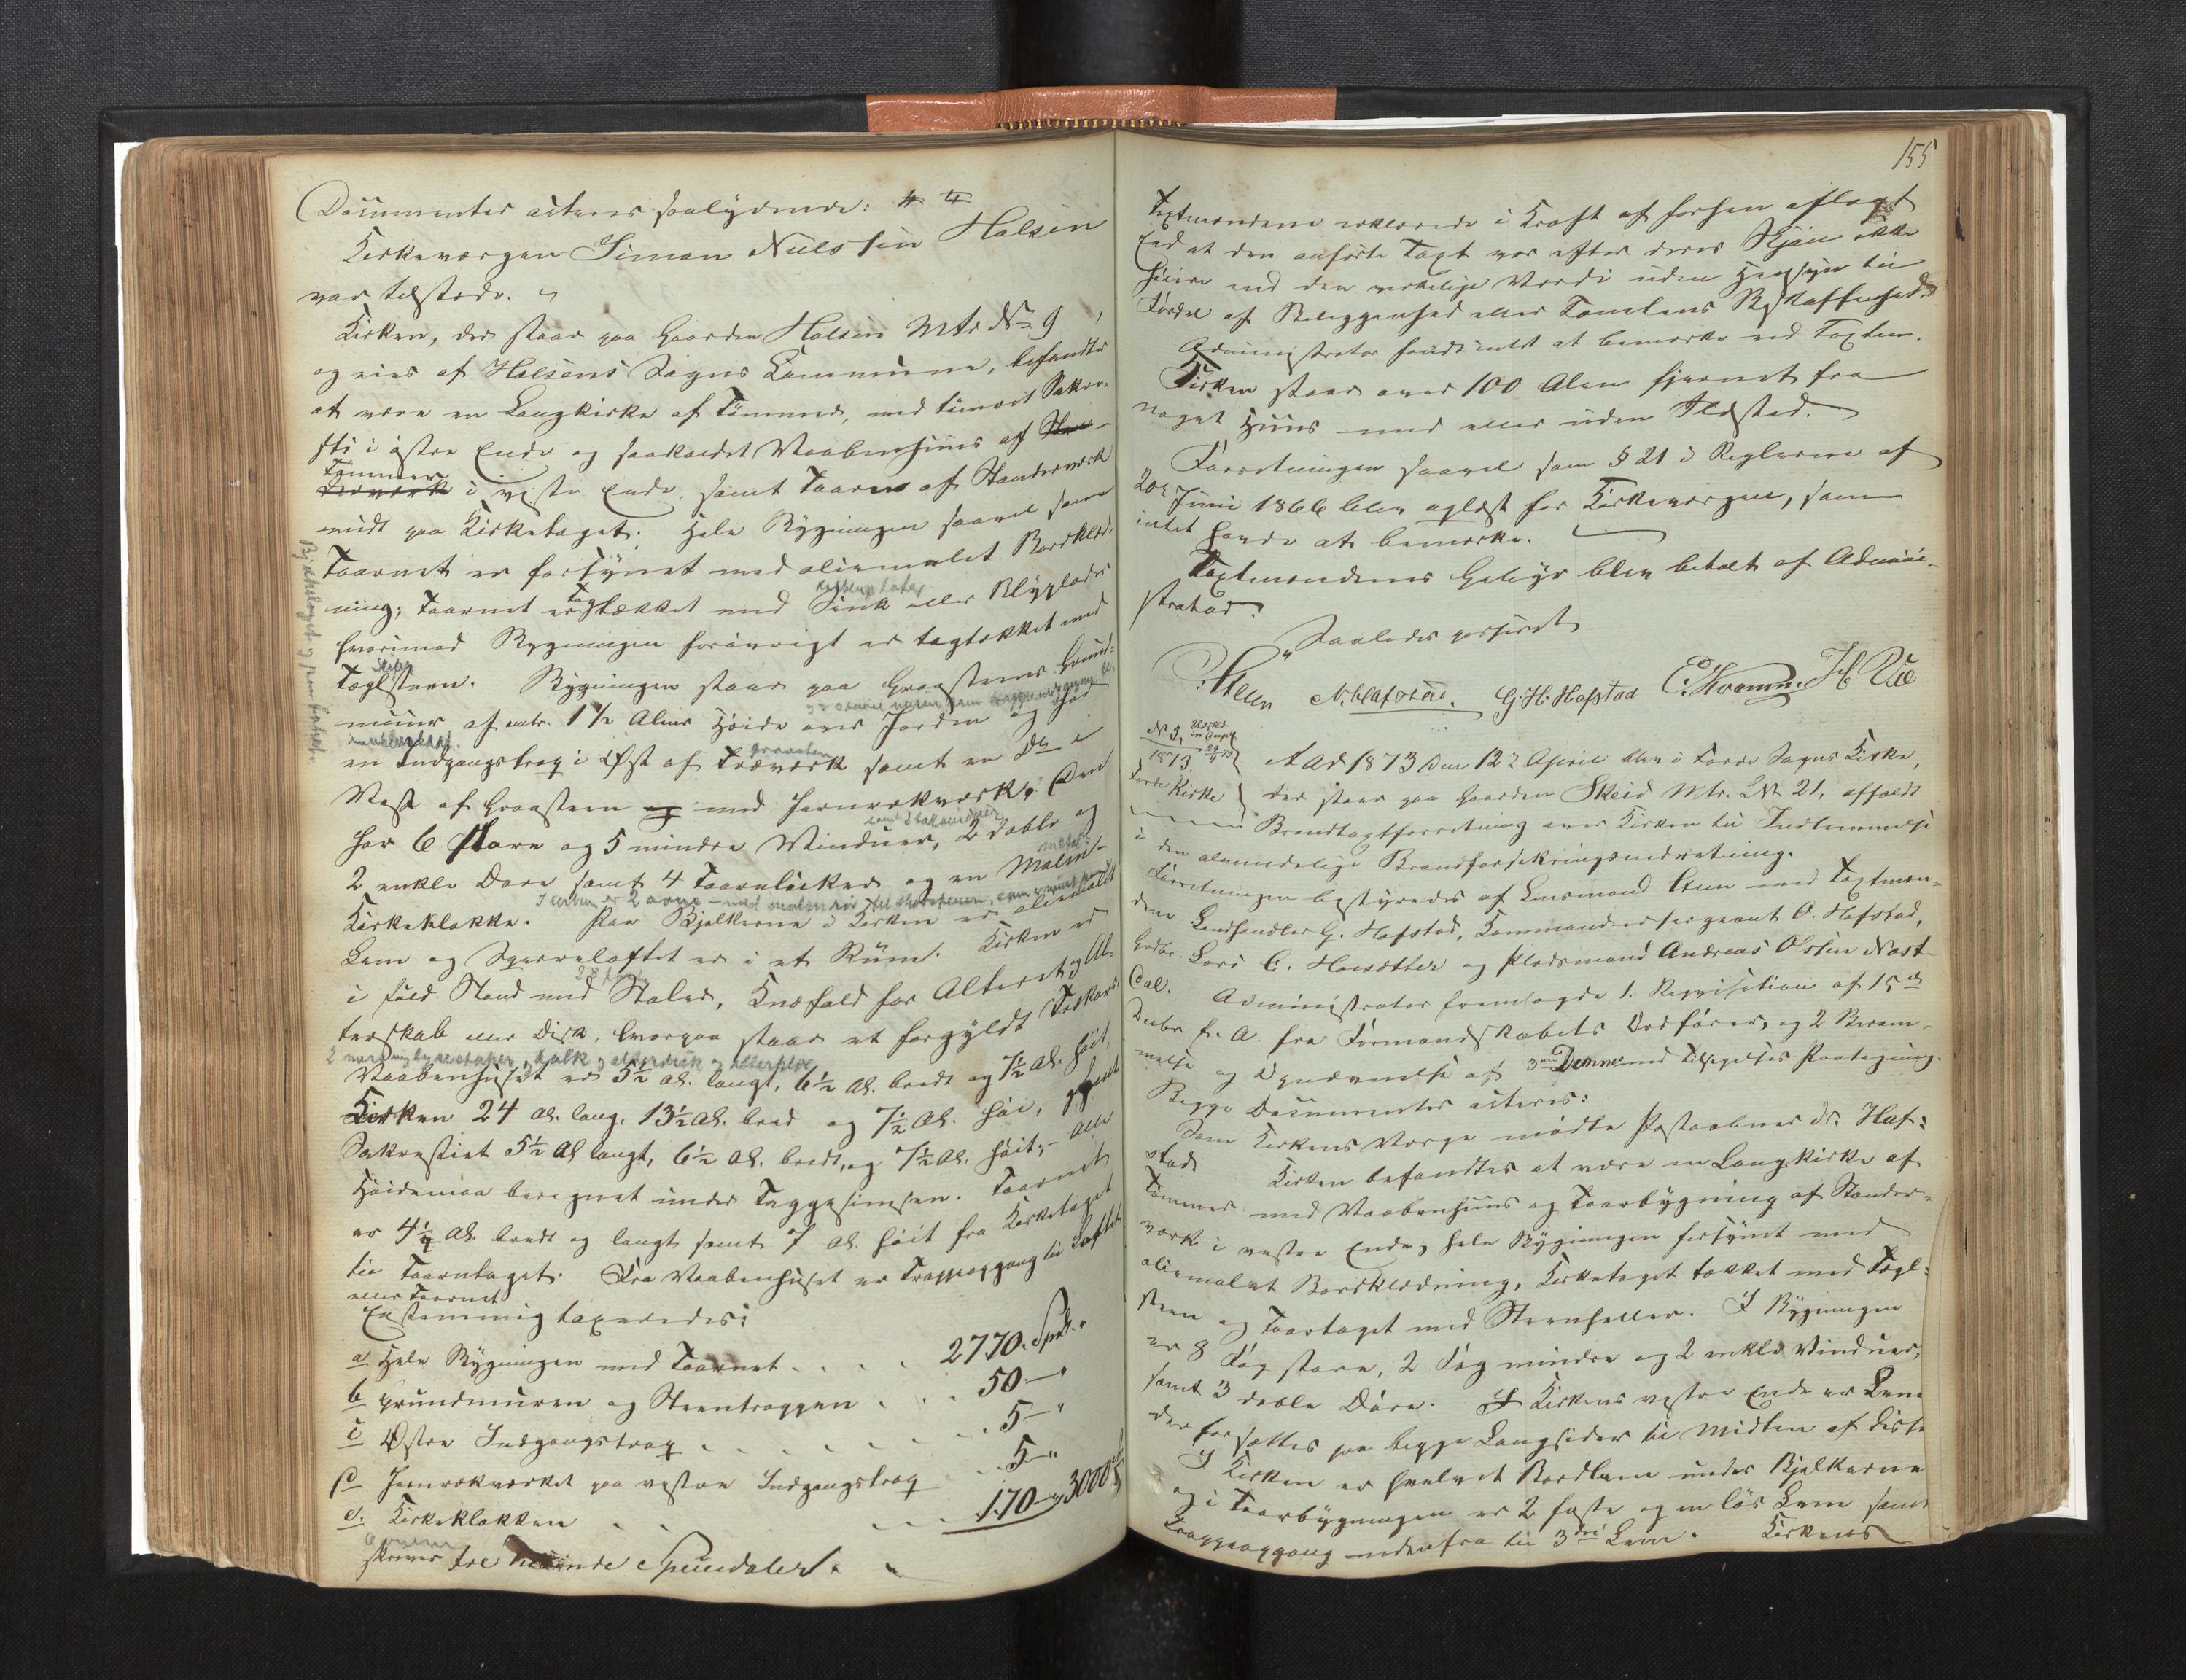 Documenter acteres saalydende:
Kirkeværgen Simon Nielssen Halsen
var tilstede.
Kirken, der staar paa Gaarden Halsen Mtr № 9
og eies af Halsens Sogns Commune, befandtes
at være en Langkirke af Tømmer, med tømret Sakri-
sti i østre Ende og saakaldet Vaabenhuus af
Tømmer
i vestre Ende, samt Taarn af Standerværk
midt paa Kirketaget. Hele Bygningen saavel som
Taarnet er forsynet med oliemalet Bordklæd-
ning; Taarnet er tagtækket med Zink eller Blyplader
hvorimod Bygningen forøvrigt er tagtækket med
Taglsteen. Bygningen staar paa Graasteens Grund-
muur af omtr. 1½ Alens Høide over Jorden og har
en Indgangstrap i Øst af Træværk samt en Do i
Vest af Graasteen med Jernrækværk. Den
har 6 store og 5 mindre Vinduer, 2 doble og
2 enkle Døre samt 4 Taarnluker og en Malm-
Kirkeklokke. Paa Bjelkerne i Kirken er oliemalet
Lem og Sperreloftet er i et Rum. Kirken er
i fuld Stand med Stoler, Knæfald for Alteret, Al-
terskab eller Disk, hvorpaa staar et forgyldt Krusifix
Vaabenhuset er 5½ Al. langt, 6½ Al. bredt og 7½ Al. høit,
Kirken 24 Al. lang, 13½ Al. bred og 7½ Al. høi,
Sakrestiet 5½ Al langt, 6½ Al. bredt, og 7½ Al. høit; - alle
Høidemaal beregnet under Taggesimsen. Taarnet
er 4½ Al. bredt og langt samt 7 Al. høit fra Kirketaget
til Taarntaget. Fra Vaabenhuset er Trappeopgang til Loftet
eller Taarnet
Enstemmig taxeredes:
a Hele Bygningen med Taarnet . . . . 2770. Spd. "
b Grundmuren og Steentrappen . . . 50 — "
c Østre Indgangstrap . . . . . . . 5 — "
d Jernrækværket paa vestre Indgangstrap . . 5 — "
e. Kirkeklokken . . . . . 170 — 3000
skriver tre tusinde Speciedaler.
155
Taxtmændene erklærede i Kraft af forhen aflagt
Eed at den anførte Taxt var efter deres Skjøn ikke
høiere end den virkelige Værdi uden Hensyn til
Fordel af Beliggenhed eller Tomtens Beskaffenhed.
Administrator fandt intet at bemærke ved Taxten.
Kirken staar over 100 Alen fjernet fra
noget Huus med eller uden Ildsted.
Forretningen saavel som § 21 i Reglerne af
20de Juni 1866 blev oplæst for Kirkeværgen, som
intet havde at bemærke.
Taxtmændenes Gebyr blev betalt af Admini-
strator.
Saaledes passeret
Steen G. H. Hafstad
№ 3,
1873
Førde Kirke
Aar 1873 den 12te April blev i Førde Sogns Kirke,
der staar paa Gaarden Skeid Mtr. № 21, afholdt
Brandtaxtforretning over Kirken til Indlemmelse
i den almindelige Brandforsikringsindretning.
Forretningen bestyredes af Lensmand Steen med Taxtmæn-
dene Landhandler G. Hafstad, Kommandeersergeant O. Hafstad,
Gdbr. Lars C. Hornsætter og Pladsmand Andreas Olsen Nast-
dal.
Administrator fremlagde 1. Reqvisition af 15de
Decbr f. A. fra Formandskabets Ordfører, og 2 Beram-
melse og Opnævnelse af 3die Dennes med Tilsigelses Paategning.
Begge Documenter acteres:
Som Kirkens Værge mødte Postaabner Dr. Haf-
stad
Kirken befandtes at være en Langkirke af
Tømmer med Vaabenhuus og Taarbygning af Stander-
værk i vestre Ende, hele Bygningen forsynet med
oliemalet Bordklædning, Kirketaget tækket med Tagl-
steen og Taartaget med Steenheller. I Bygningen
er 8 Fag store, 2 Fag mindre og 2 enkle Vinduer,
samt 3 doble Døre. I Kirkens vestre Ende er Lem
der forsættes paa begge Langsider til Midten af disse
I Kirken er hvelvet Bordlem under Bjelkerne
og i Taarbygningen er 2 faste og en løs Lem samt
Trappeopgang nedenfra til 3die Lem. Kirkens